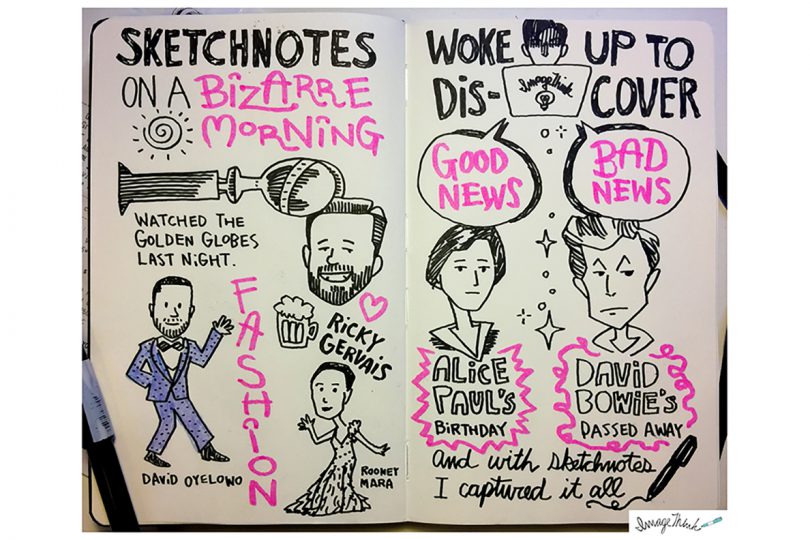 SKETCHNOTES
ON A BIZARRE
MORNING
WATCHED THE
GOLDEN GLOBES
LAST NIGHT.
FASHION
RICKY
GERVAIS
DAVID OYELOWO
ROONEY
MARA
WOKE UP TO
DIS-COVER
ImageThink
GOOD
NEWS
BAD
NEWS
ALICE
PAUL'S
BIRTHDAY
DAVID
BOWIE'S
PASSED AWAY
and with sketchnotes
I captured it all
ImageThink